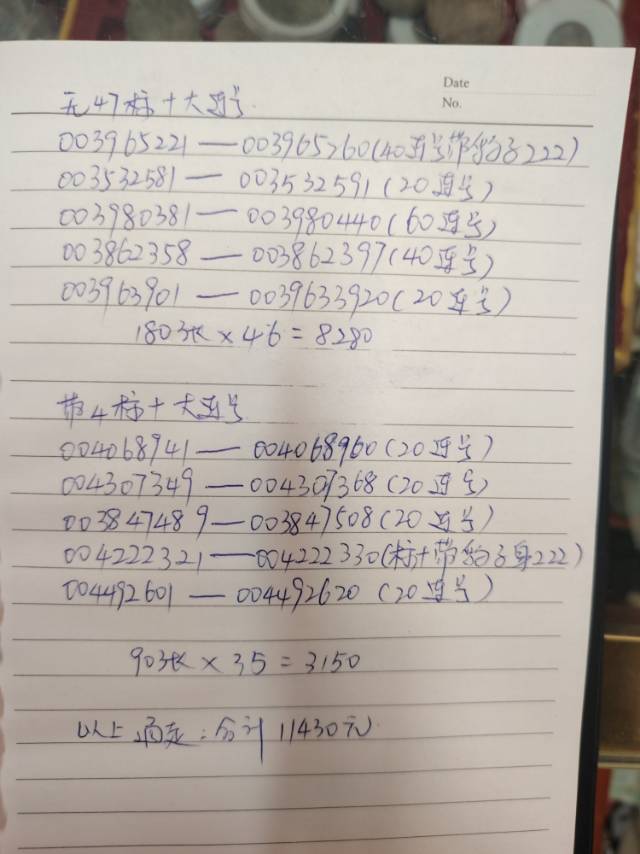 Date
No.
无47标十大连号
003965221—003965260(40连号带豹子222)
003532581—003532591(20连号)
003980381—003980440(60连号)
003862358—003862397(40连号)
003963901—0039633920(20连号)
180张×46=8280
带4标十大连号
004068941—004068960(20连号)
004307349—004307368(20连号)
003847489—003847508(20连号)
004222321—004222330(标十带豹子号222)
004492601—004492620(20连号)
90张×35=3150
以上 :合计11430元